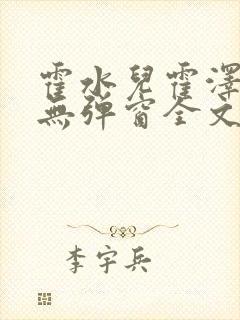 霍水兒霍澤
無弹窗全文
李宇兵